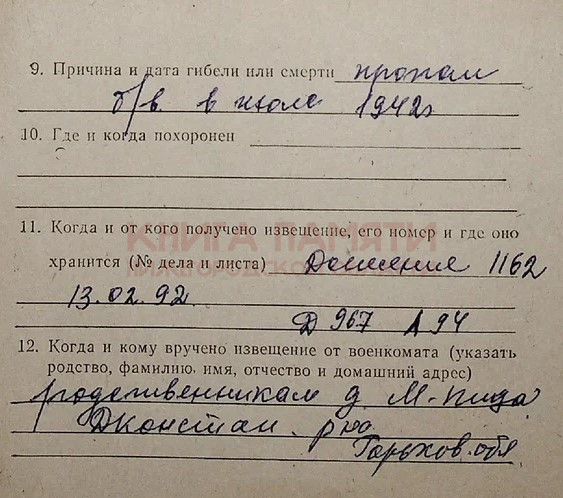 9. Причина и дата гибели или смерти пропал
б/в. в июле 1942г
10. Где и когда похоронен
11. Когда и от кого получено извещение, его номер и где оно
КНИГА ПАМЯТИ
хранится (№ дела и листа) Донесение 1162
НИЖЕГОРОДСКОЙ ОБЛАСТИ
13.02.92
Д 967 Л 94
12. Когда и кому вручено извещение от военкомата (указать
родство, фамилию, имя, отчество и домашний адрес)
родственникам д М-Пица
Дконстан. р-на
Горьков. обл